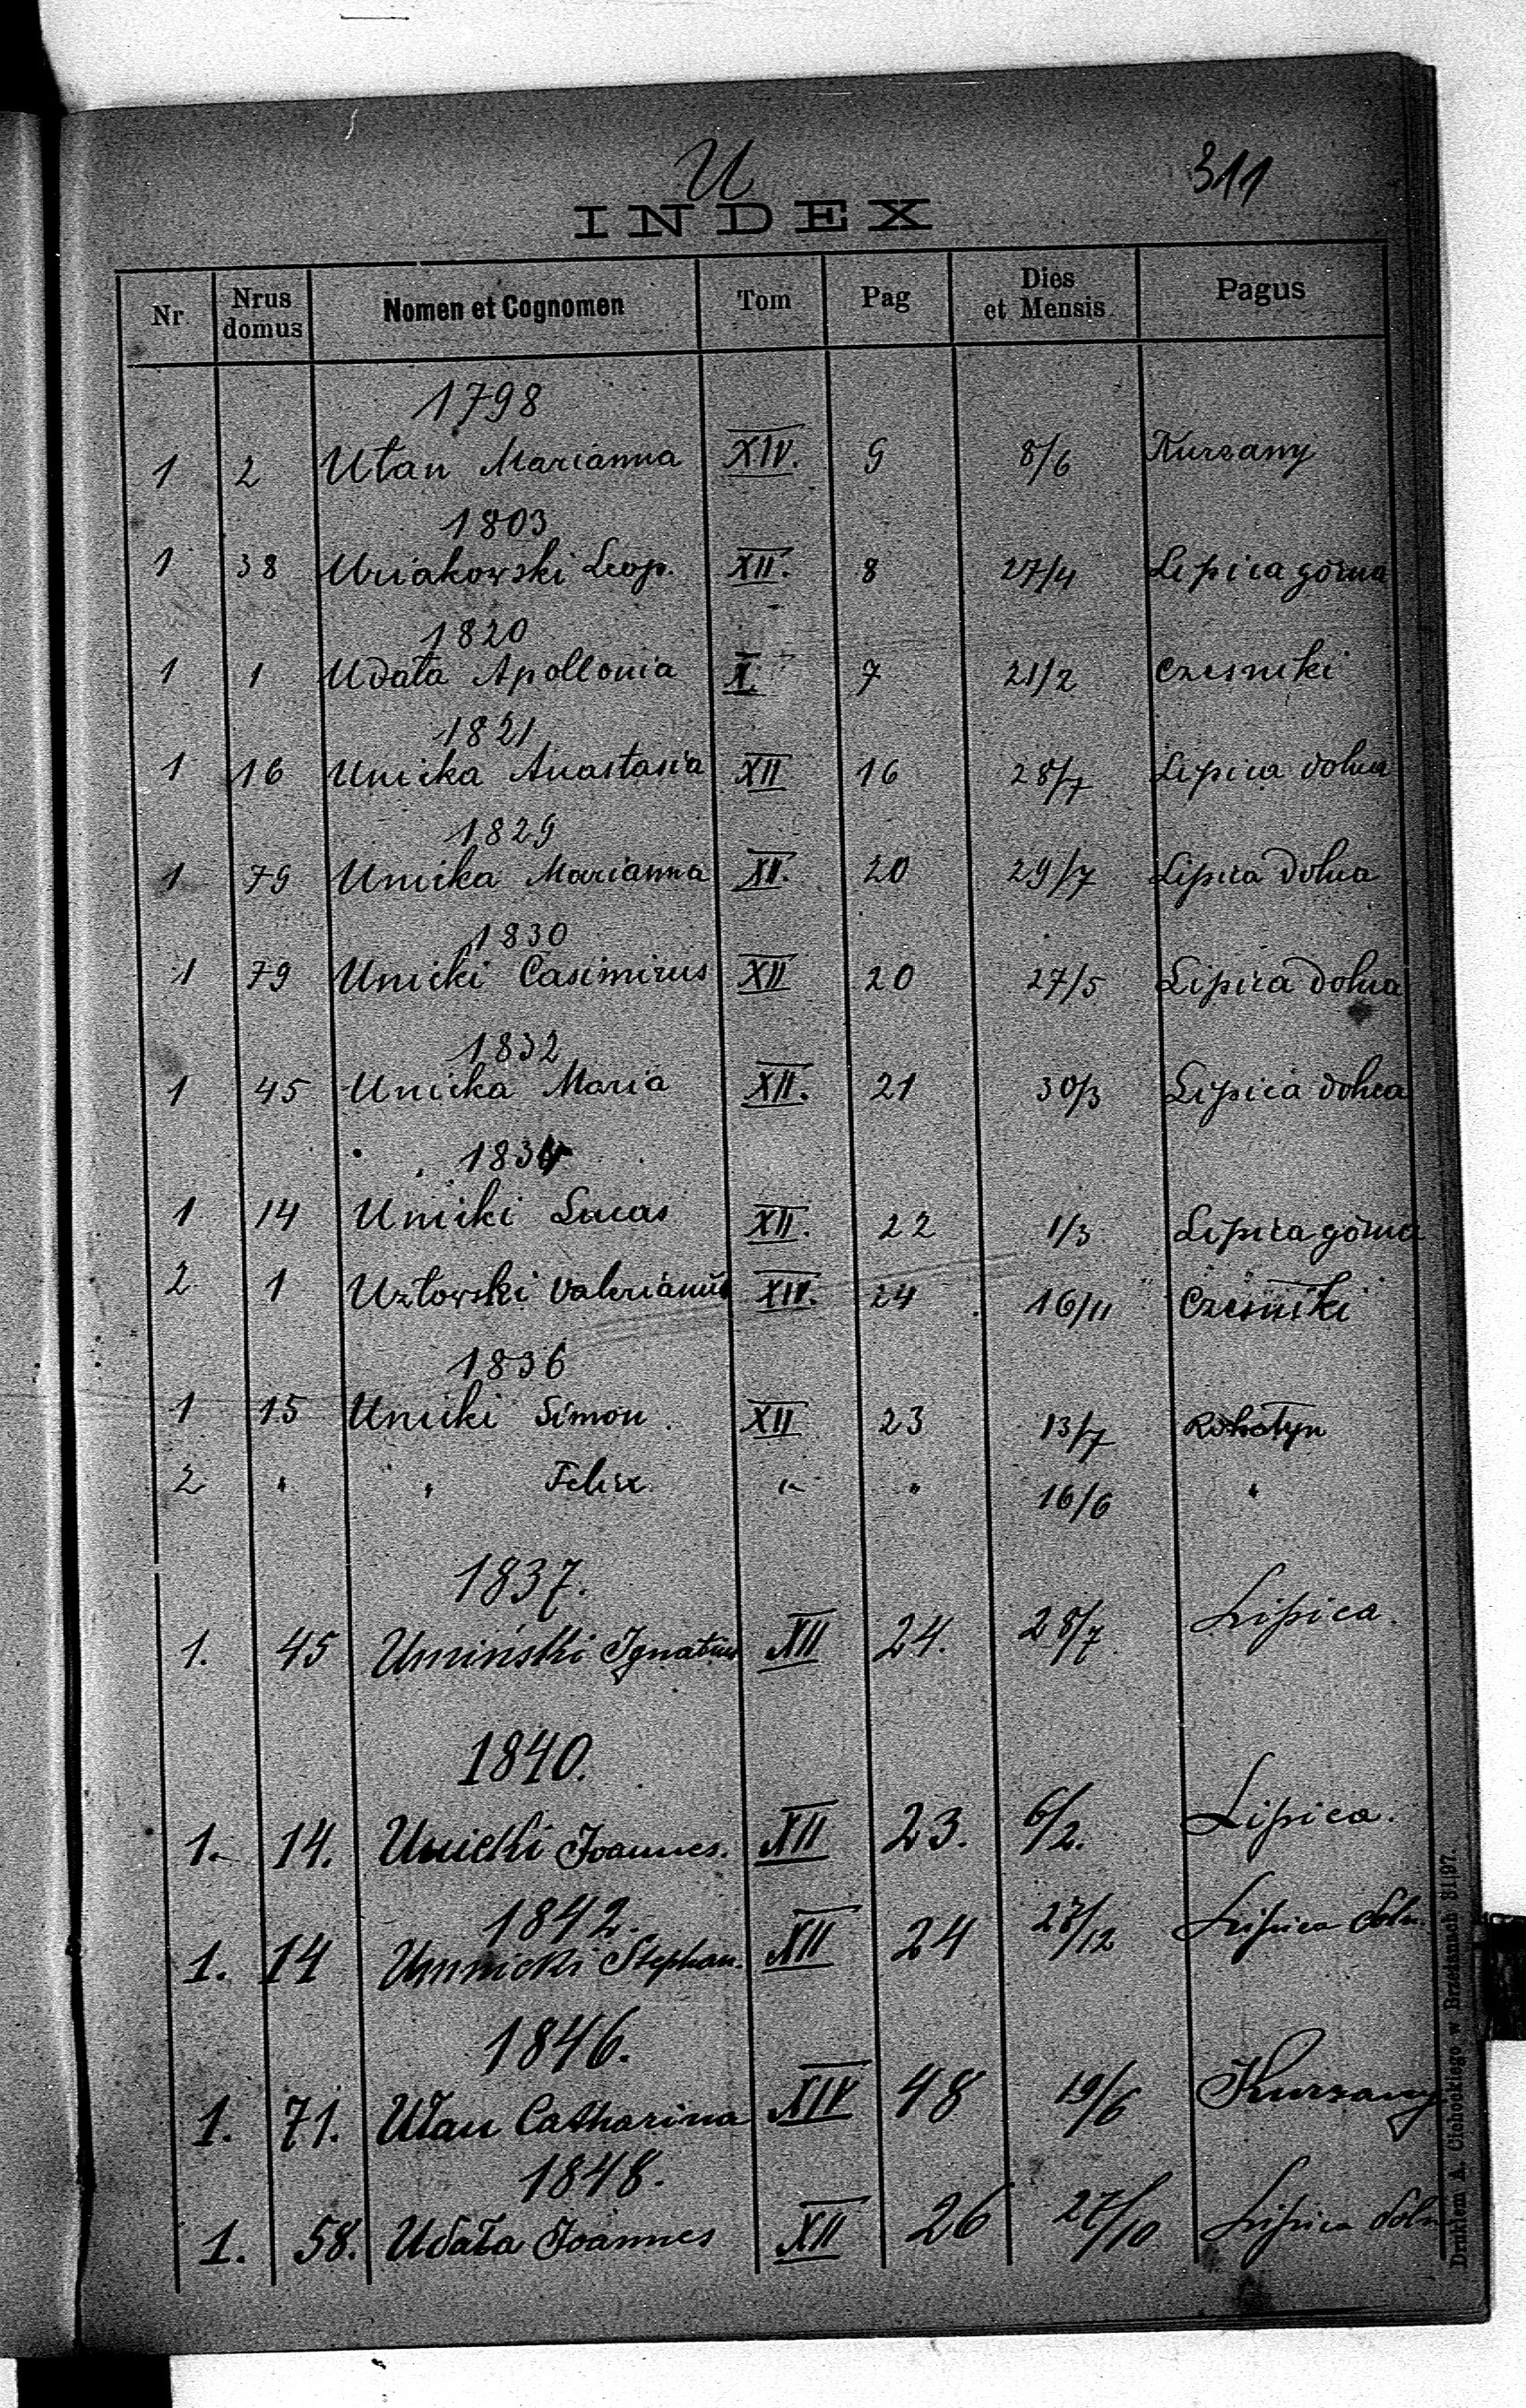 U
311
INDEX
Nr Nrus domus Nomen et Cognomen Tom Pag Dies et Mensis Pagus
1798
1 2 Ułan Marianna XIV. 9 8/6 Kurzany
1803
1 38 Uriakowski Leop. XII. 8 27/4 Lipica górna
1820
1 1 Udała Apollonia X. 7 21/2 Czesniki
1821
1 16 Unicka Anastasia XII 16 28/7 Lipica dolna
1829
1 79 Unicka Marianna XII. 20 29/7 Lipica dolna
1830
1 79 Unicki Casimirus XII 20 27/5 Lipica dolna
1832
1 45 Unicka Maria XII. 21 30/3 Lipica dolna
1834
1 14 Unicki Lucas XII. 22 1/3 Lipica górna
2 1 Uztowski Valerianus XIV. 24 16/11 Czesniki
1836
1 15 Unicki Simon XII 23 13/7 Rohatyn
2 " " Felix " " 16/6 "
1837.
1. 45 Umiński Ignatius XII 24. 28/7 Lipica.
1840.
1. 14. Unicki Joannes. XII 23. 6/2. Lipica.
1842.
1. 14 Umnicki Stephan. XII 24 27/12 Lipica doln
1846.
1. 71. Ułan Catharina XIV 48 19/6 Kurzany
1848.
1. 58. Udała Joannes XII 26 27/10 Lipica doln
Drukiem A. Cichockiego w Brzeżanach 81|97.